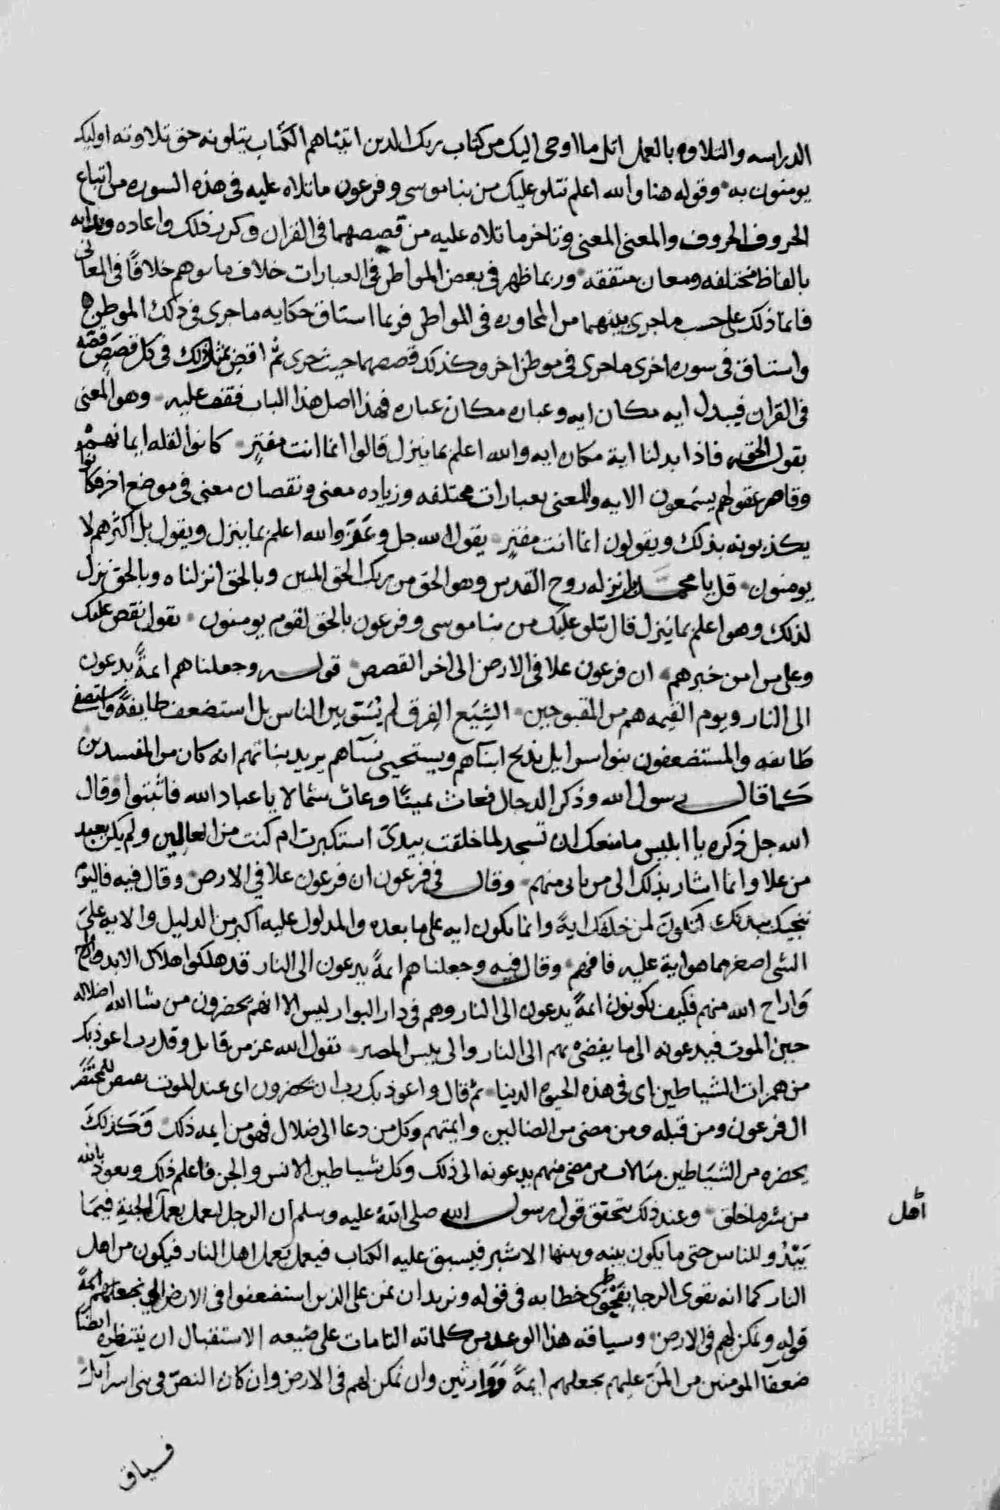 الدراسه والتلاوه بالعمل اتل ما اوحى اليك من كتاب ربك الذين اتيناهم الكتاب يتلونه حق تلاوته اوليك
يومنون به وقوله هنا والله اعلم نتلو عليك من نبا موسى وفرعون ما تلاه عليه فى هذه السوره من اتباع
الحروف الحروف والمعنى المعنى وتاخر ما تلاه عليه من قصصهما فى القران وكرر ذلك واعاده
بالفاظ مختلفه ومعان متفقه وربما ظهر فى بعض المواطن فى العبارات خلاف ما يوهم خلافًا فى المعانى
فانما ذلك على حسب ما جرى بينهما من المحاوره فى المواطن فربما استاق حكايه ما جرى فى ذلك الموطن
واستاق فى سوره اخرى ما جرى فى موطن اخر وكذلك قصصهما حيث جرى ثم اقض بمثل ذلك فى كل قصص قصه
فى القران فيبدل ايه مكان ايه وعباره مكان عباره فهذا اصل هذا الباب فقف عليه وهو المعنى
بقول الحق فاذا بدلنا اية مكان ايه والله اعلم بما ينزل قالوا انما انت مفترٍ كانوا لقله ايمانهم
وقاصر عقولهم يسمعون الايه والمعنى بعبارات مختلفه وزياده معنى ونقصان معنى فى موضع اخر فكانوا
يكذبونه بذلك ويقولون انما انت مفترٍ يقول الله جل وعز والله اعلم بما ينزل ويقول بل اكثرهم لا
يومنون قل يا محمد نزله روح القدس وهو الحق من ربك الحق المبين وبالحق انزلناه وبالحق نزل
لذلك وهو اعلم بما ينزل قال نتلو عليك من نبا موسى وفرعون بالحق لقوم يومنون يقول نقص عليك
وعلى من امن خبرهم ان فرعون علا فى الارض الى اخر القصص قوله وجعلناهم ايمةً يدعون
الى النار ويوم القيمه هم من المقبوحين الشِيَع الفرق لم يُسَوّ بين الناس بل استضعف طايفةً
طايفه والمستضعفون بنو اسرايل يذبح ابناهم ويستحيى نساهم يريد بناتهم انه كان من المفسدين
كما قال رسول الله وذكر الدجال فعاث يمينًا وعاث شمالا يا عباد الله فاثبتوا وقال
الله جل ذكره يا ابليس ما منعك ان تسجد لما خلقت بيدىّ استكبرت ام كنت من العالين ولم يكن بعيد
من علا وانما اشار بذلك الى من ياتى منهم وقال فى فرعون ان فرعون علا فى الارض وقال فيه فاليوم
ننجيك ببدنك لتكون لمن خلفك ايةً وانما يكون ايه على ما بعده والمدلول عليه اكبر من الدليل والايه على
الشى اصغر مما هو اية عليه فافهم وقال فيه وجعلناهم ايمةً يدعون الى النار قد هلكوا هلاك الابد
واراح الله منهم فكيف يكونون ايمةً يدعون الى النار وهم فى دار البوار ليس الا انهم يحضرون من شا الله اضلاله
حين الموت فيدعونه الى ما يفضى بهم الى النار والى بيس المصير يقول الله عز من قايل وقل رب اعوذ بك
من همزات الشياطين اى فى هذه الحيوه الدنيا ثم قال واعوذ بك رب ان يحضرون اى عند الموت
ال فرعون ومن قبله ومن مضى من الضالين وايمتهم وكل من دعا الى ضلال فهو من ايمه ذلك فكذلك
يحضره من الشياطين من مضى منهم يدعونه الى ذلك وكل شياطين الانس والجن فاعلم ذلك ونعوذ بالله
من شر ما خلق وعند ذلك يتحقق قول رسول الله صلى الله عليه وسلم ان الرجل ليعمل بعمل الجنةِ فيما
يَبْدُو للناس حتى ما يكون بينه وبينها الا شبر فيسبق عليه الكتاب فيعمل بعمل اهل النار فيكون من اهل
اهل
النار كما انه يقوى الرجا خطابه فى قوله ونريد ان نمن على الذين استضعفوا فى الارض الى نجعلهم ايمةً
قوله ونمكن لهم فى الارض وسياقه هذا الوعد من كلماته التامات على صيغه الاستقبال ان ينتظره ايضًا
ضعفآ المومنين من المن عليهم بجعلهم ايمةً ووارثين وان نمكن لهم فى الارض وان كان النص فى بنى اسرآيل
فسياق